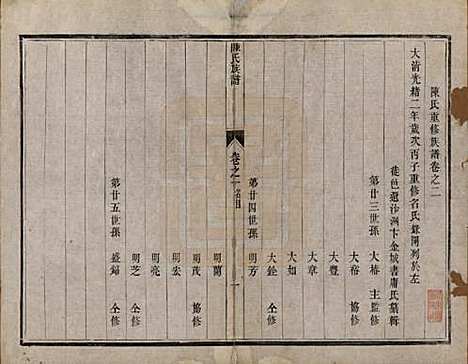 陳氏重修族譜卷之二
大清光緒二年歲次丙子重修名氏錄開列於左
徙邑遊汐洲卞金城書屑氏纂輯
第廿三世孫
大椿 主監修
大裕 協修
大豐
大章
大如
大銓 仝修
第廿四世孫
明芳
陳氏族譜
卷之二 名目
一
明蘭
明茂 協修
明宏
明亮
明芝 仝修
第廿五世孫
蓋歸 仝修